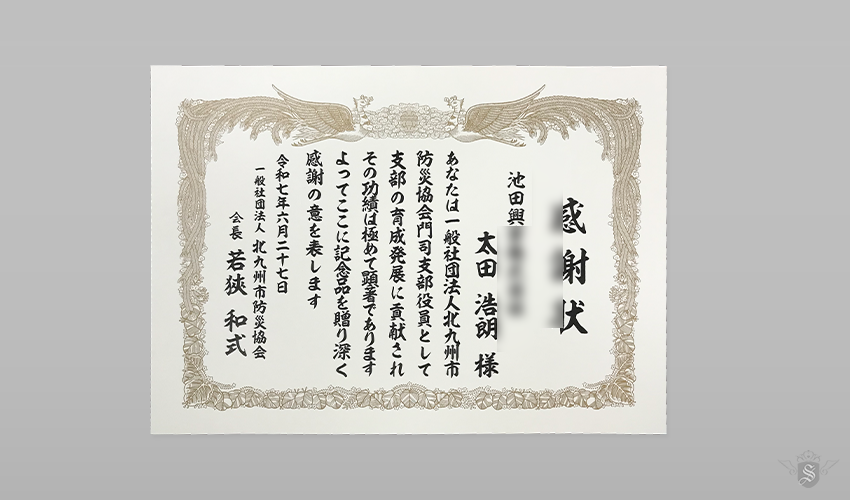 感謝状
池田興
太田 浩朗 様
あなたは一般社団法人北九州市
防災協会門司支部役員として
支部の育成発展に貢献され
その功績は極めて顕著であります
よってここに記念品を贈り深く
感謝の意を表します
令和七年六月二十七日
一般社団法人 北九州市防災協会
会長 若狹 和式
S